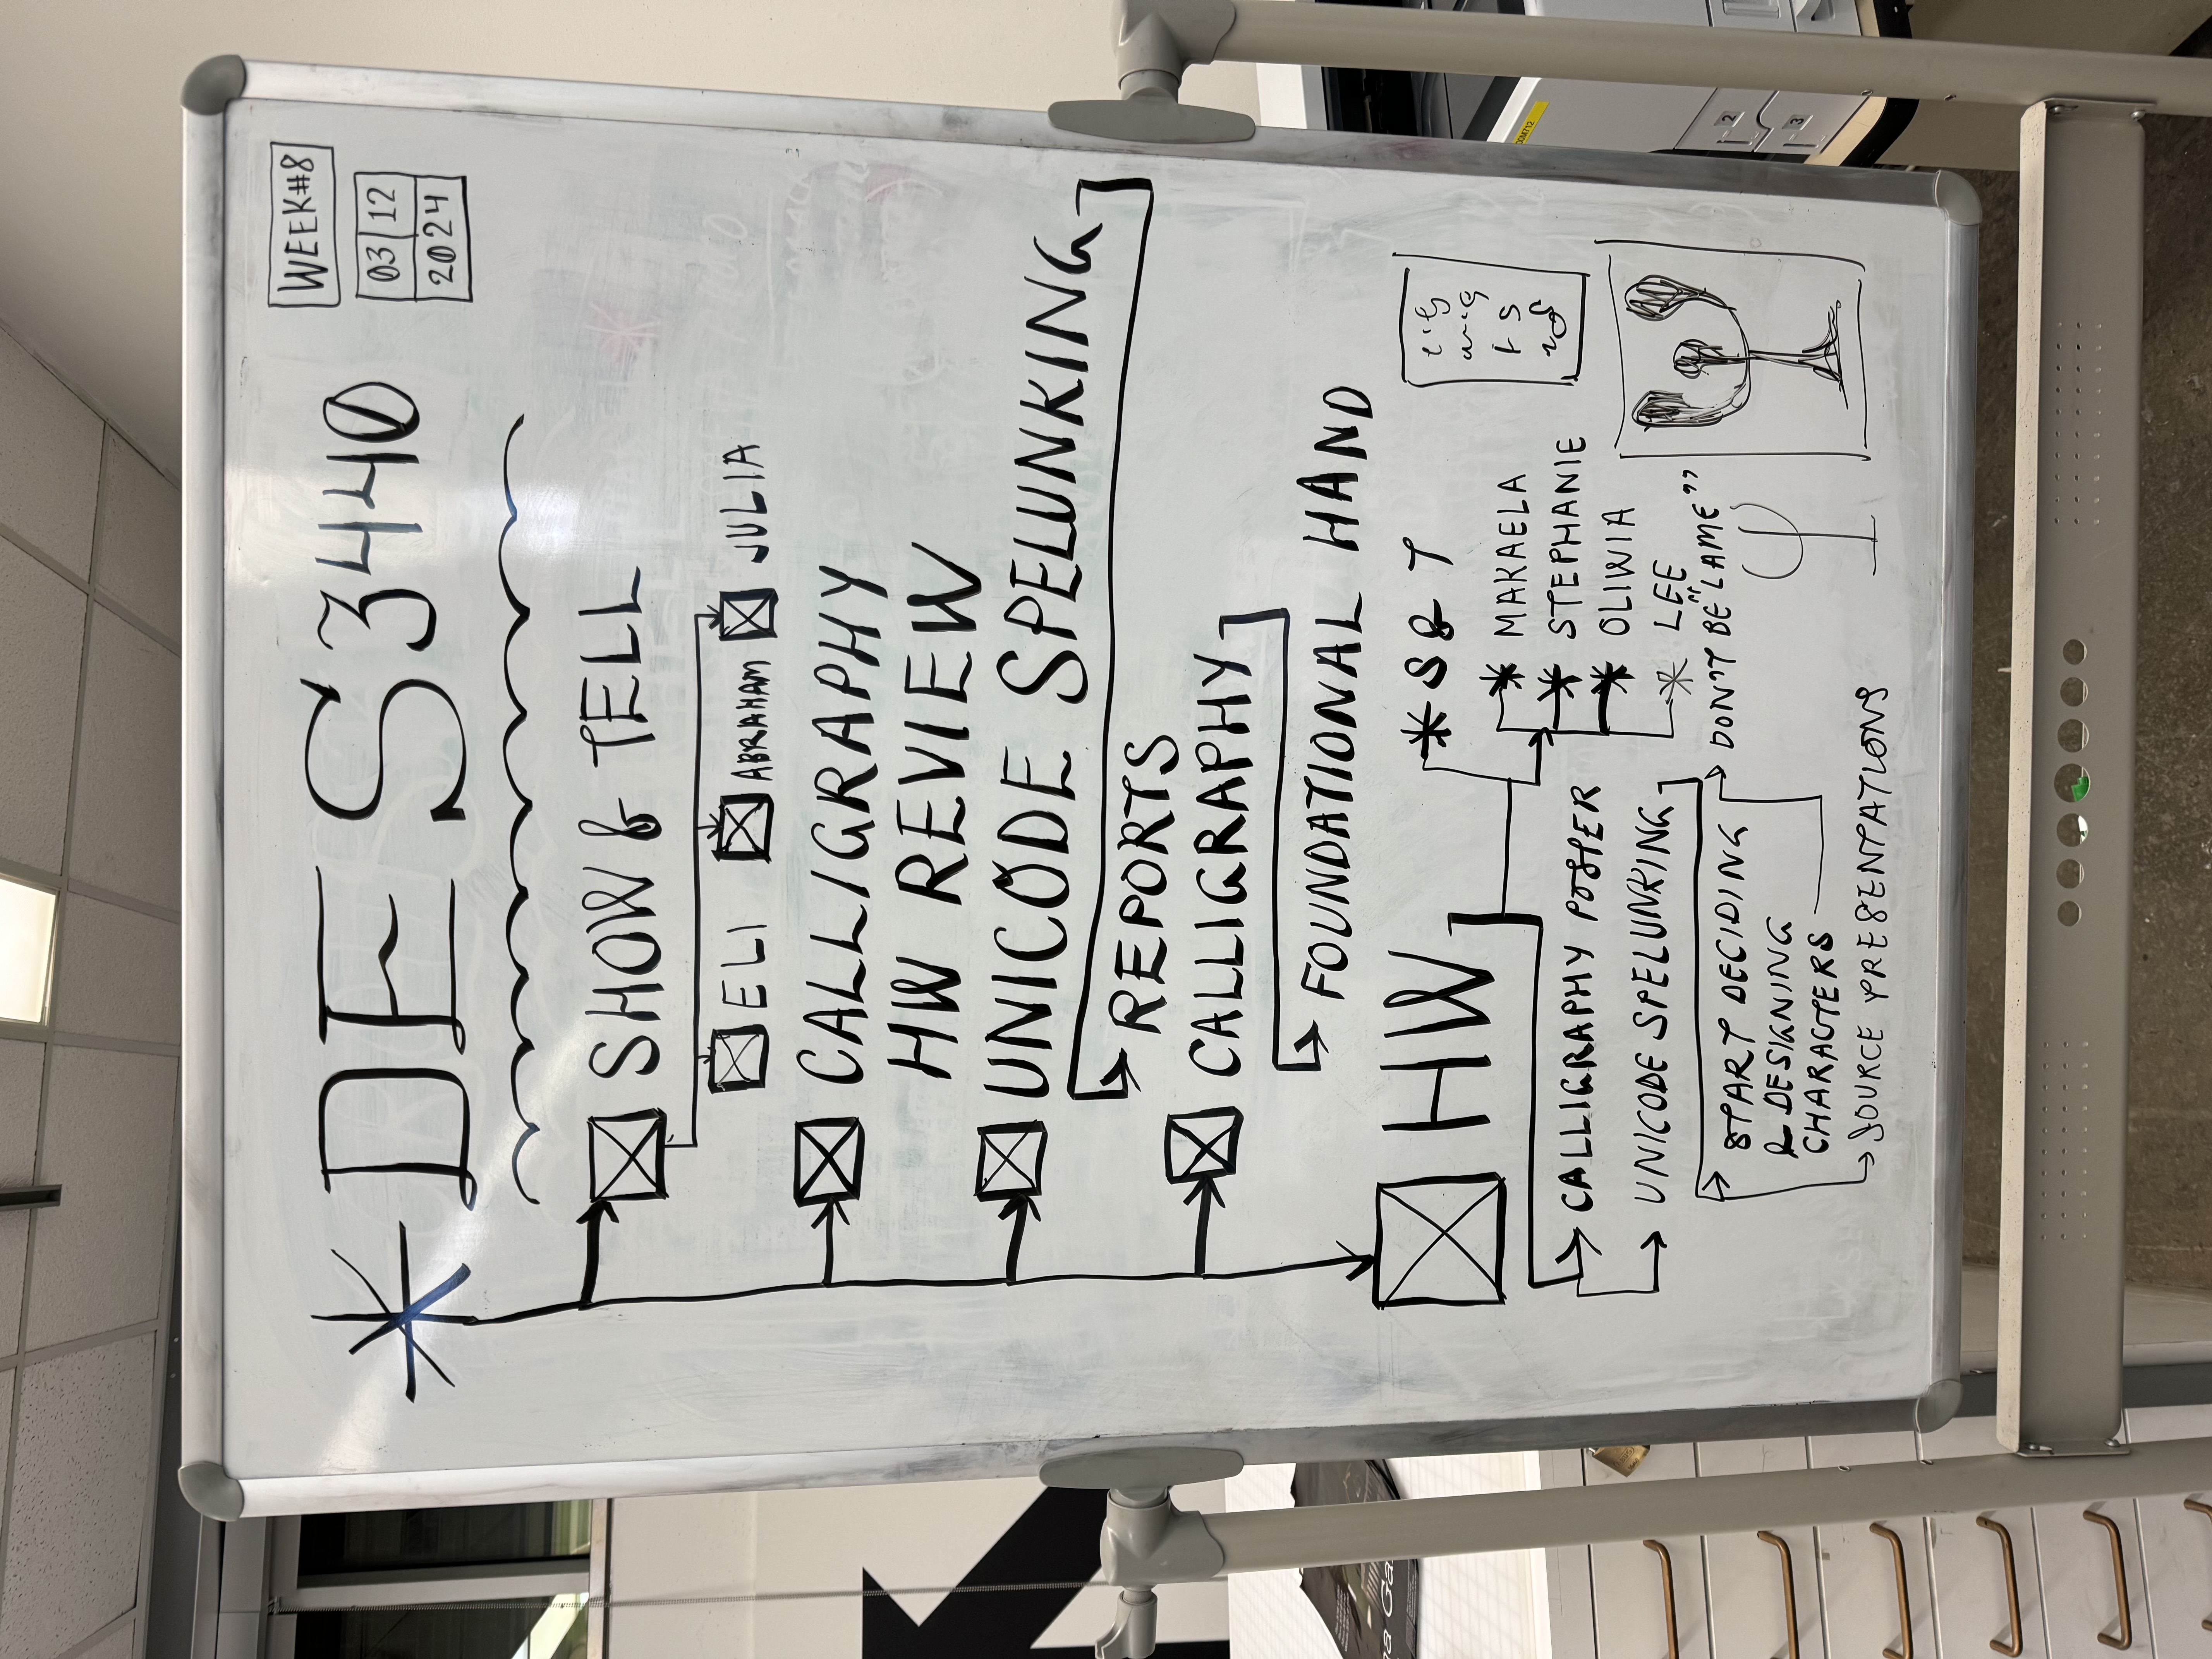 WEEK#8
03 | 12
2024
* DES 3440
SHOW & TELL
ELI ABRAHAM JULIA
CALLIGRAPHY
HW REVIEW
UNICODE SPELUNKING
REPORTS
CALLIGRAPHY
FOUNDATIONAL HAND
HW
* S & T
* MAKAELA
* STEPHANIE
* OLIWIA
* LEE
CALLIGRAPHY POSTER
UNICODE SPELUNKING
START DECIDING
& DESIGNING
CHARACTERS
DON'T BE "LAME"
SOURCE PRESENTATIONS
2
3